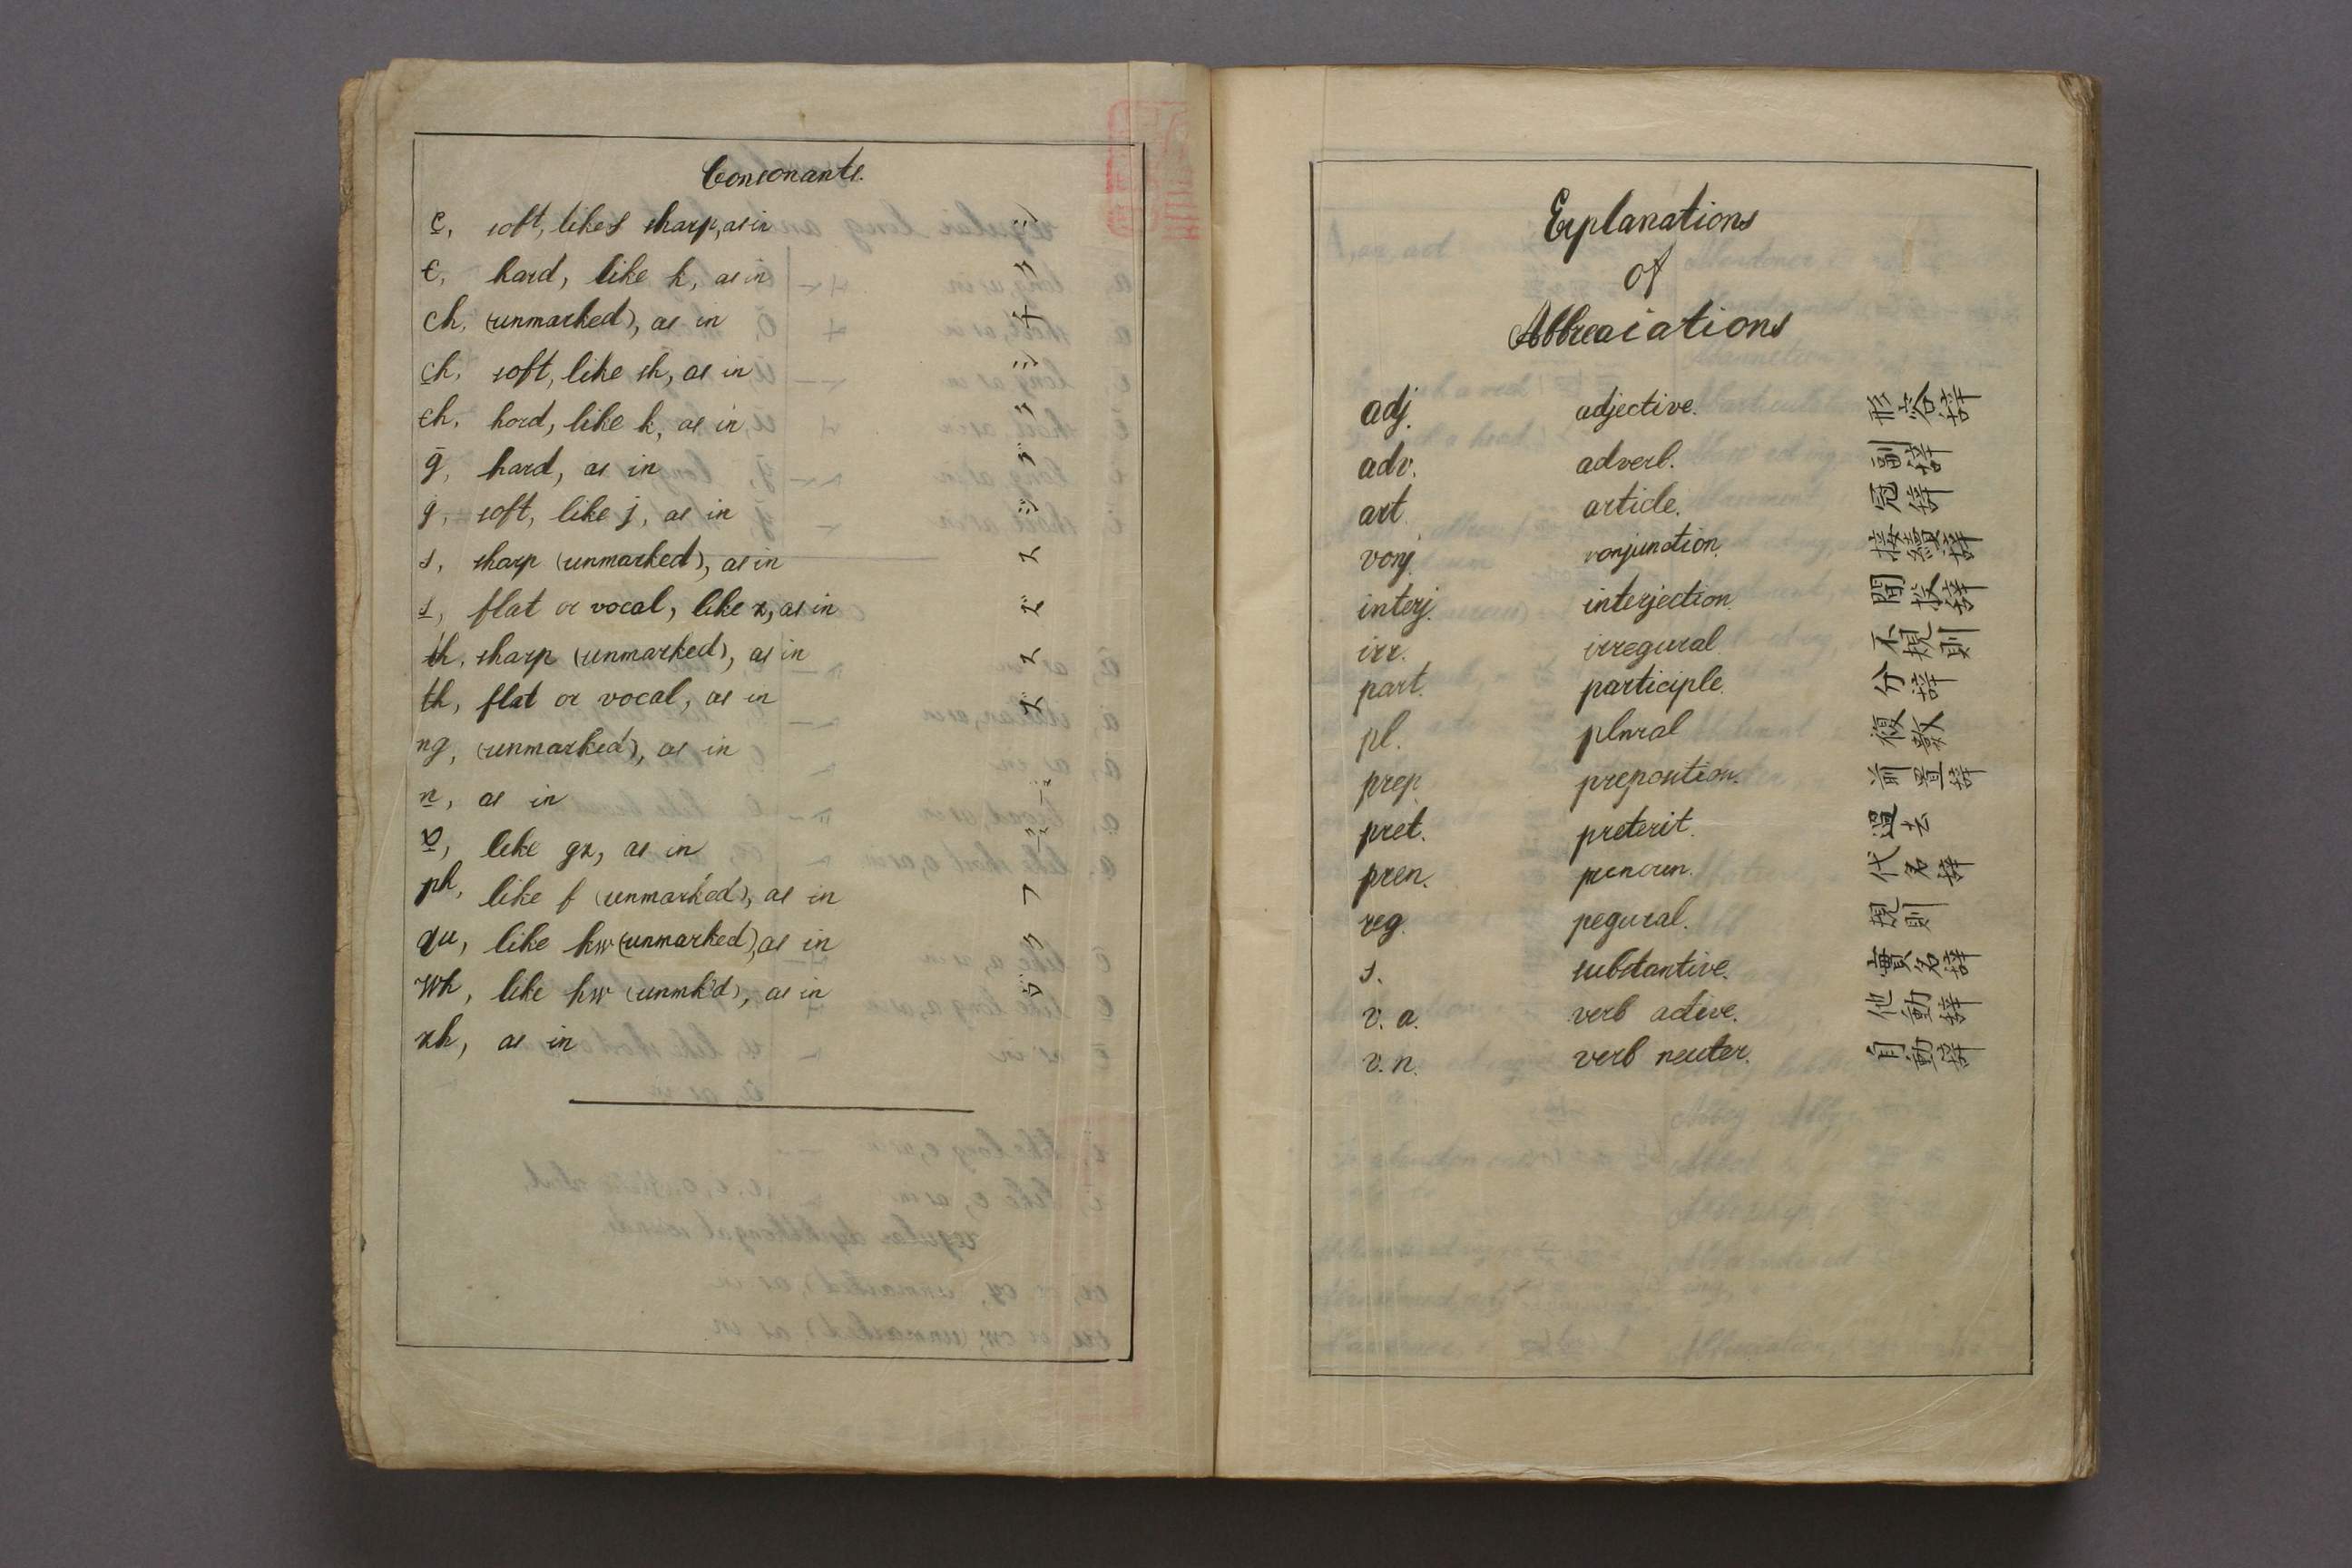 Consonants.
c, soft, like s sharp, as in
c, hard, like k, as in
ch, (unmarked), as in チ
ch, soft, like sh, as in
ch, hord, like k, as in
g, hard, as in
g, soft, like j, as in
s, sharp (unmarked), as in ス
s, flat or vocal, like z, as in ズ
th, sharp (unmarked), as in ス
th, flat or vocal, as in ズ
ng, (unmarked), as in
n, as in
x, like gz, as in
ph, like f (unmarked), as in フ
qu, like kw (unmarked), as in ク
wh, like hw (unmk'd), as in
zh, as in
Explanations
of
Abbreaiations
adj. adjective. 形容辞
adv. adverb. 副辞
art. article. 冠辞
vonj. vonjunction. 接續辞
interj. interjection. 間投辞
irr. irregural 不規則
part. participle. 分辞
pl. plnral 複数
prep. preposition. 前置辞
pret. preterit. 過去
pren. prenoun. 代名辞
reg. pegural. 規則
s. substantive. 實名辞
v. a. verb active. 他動辞
v. n. verb neuter. 自動辞